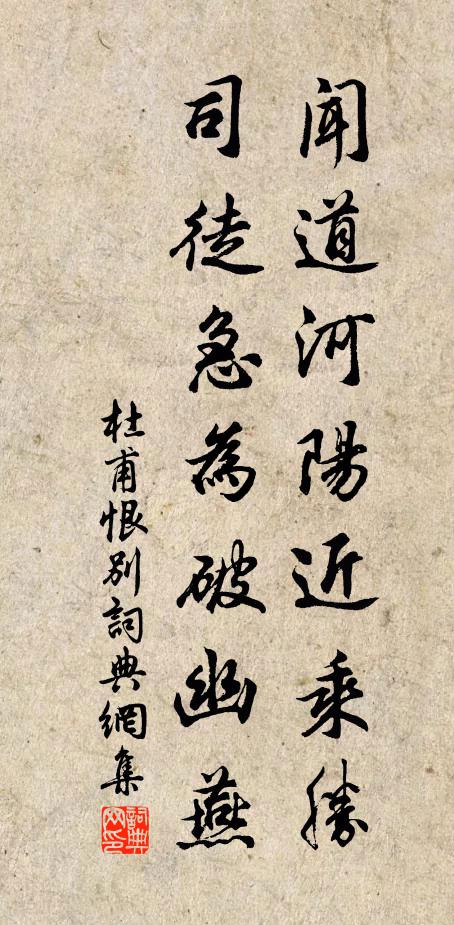 聞道河陽近乘勝
司徒急為破幽燕
杜甫恨別詞典網集
詞典
网印